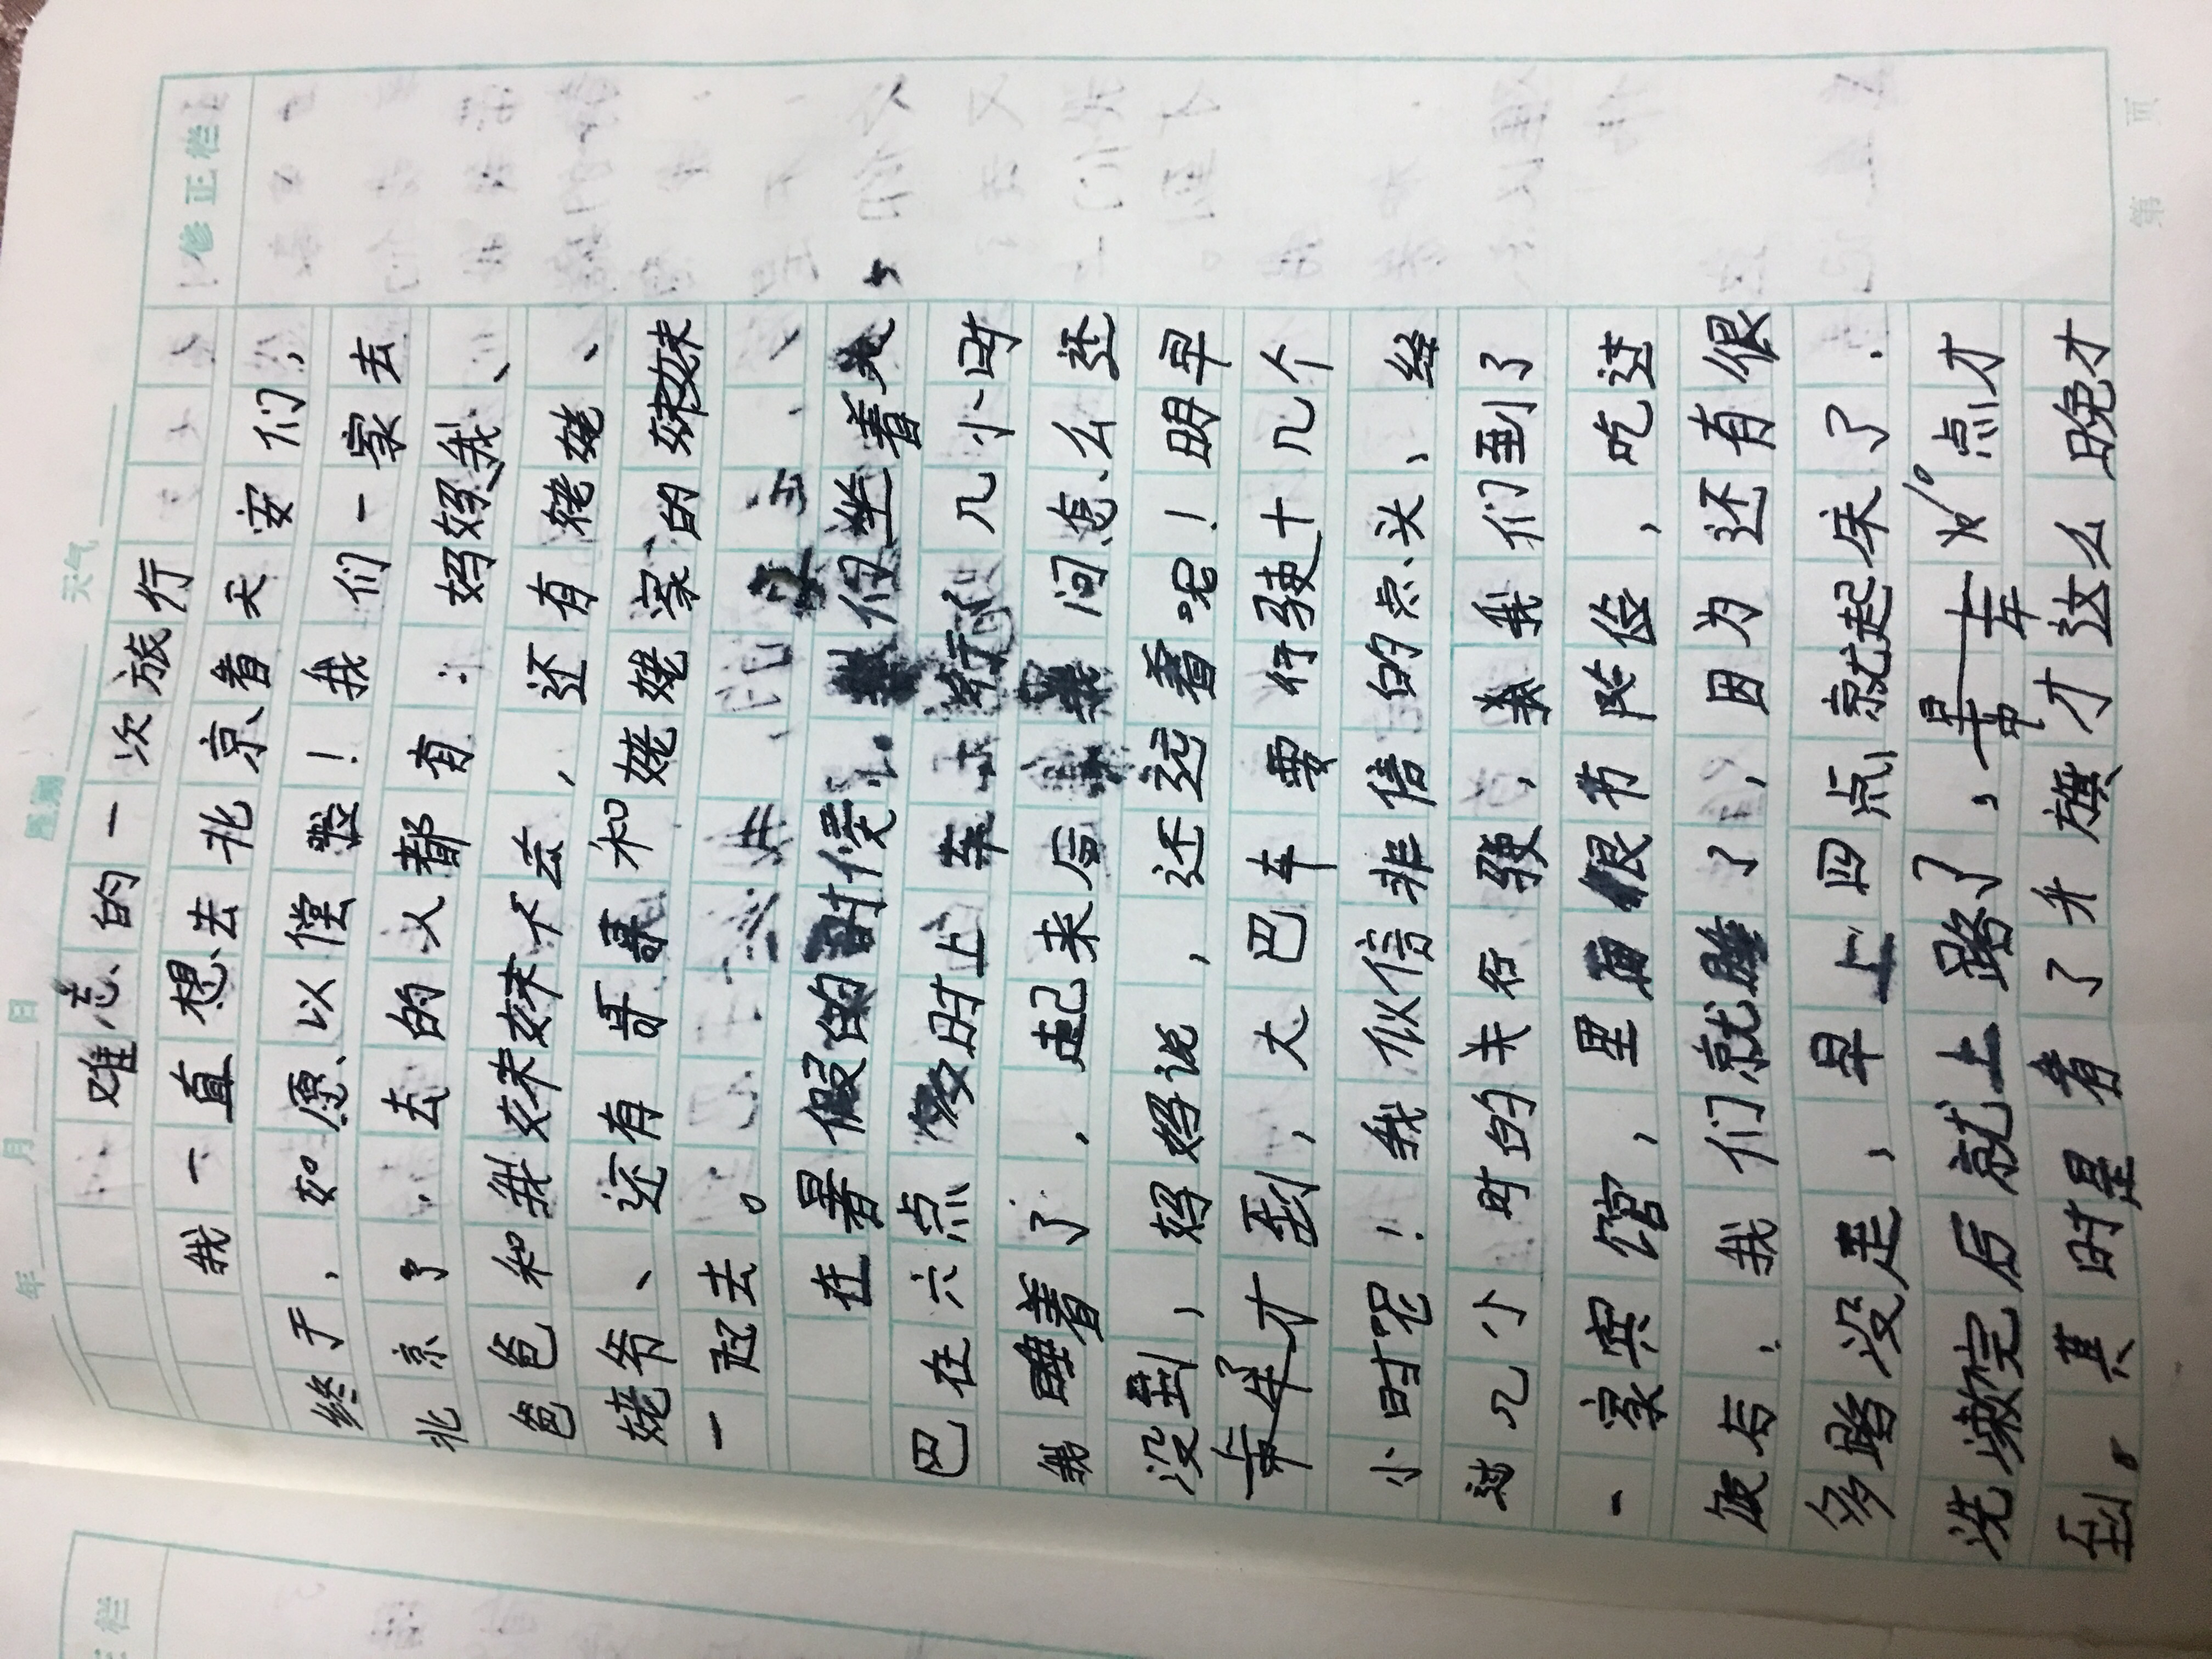 年 月 日 星期 天气
修正栏
难忘的一次旅行
我一直想去北京看天安们,
终于,如愿以偿啦!我们一家去
北京了.去的人都有:妈妈我、
爸爸和我妹妹不去,还有姥姥、
姥爷、还有哥哥和姥姥家的妹妹
一起去。
在暑假的时侯.我们坐着大
巴在六点多时上车行了几小时
我睡着了.起来后我问怎么还
没到,妈妈说,还远着呢!明早
才到,大巴车要行驶十几个
小时呢!我似信非信的点头、经
过几小时的车行驶,我们到了
一家宾馆,里面很节险,吃过
饭后.我们就睡了,因为还有很
多路没走,早上四点就起床了.
洗漱完后就上路了,点才
到。其时是看了升旗才这么晚才
第 页
栏